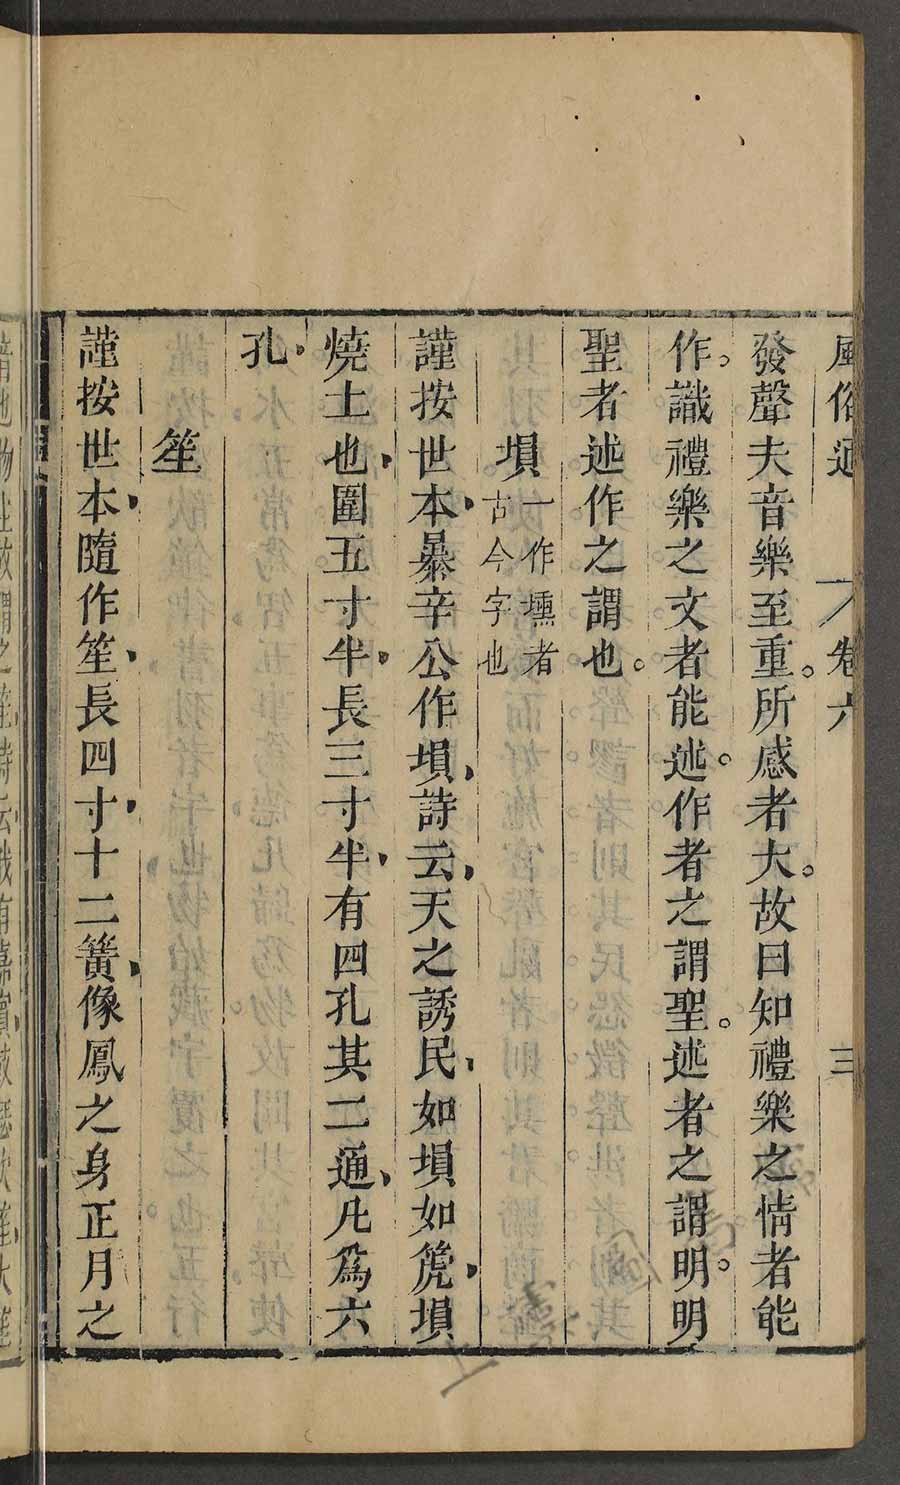 風俗通 卷六 三
發聲夫音樂至重。所感者大。故曰知禮樂之情者能
作。識禮樂之文者能述。作者之謂聖。述者之謂明。明
聖者述作之謂也。
塤一作壎者古今字也
謹按世本、暴辛公作塤、詩云、天之誘民、如塤如箎、塤
燒土也、圍五寸半、長三寸半、有四孔其二通、凡爲六
孔、
笙
謹按世本、隨作笙、長四寸、十二簧、像鳳之身正月之